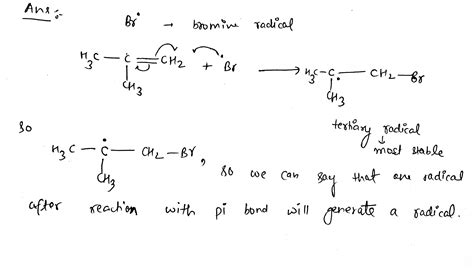 Ans:-
Br• → bromine radical
H3C – C = CH2 + •Br → H3C – C• – CH2 – Br
CH3 CH3
tertiary radical
↓
most stable
so
H3C – C• – CH2 – Br, so we can say that one radical
CH3
after reaction with pi bond will generate a radical.